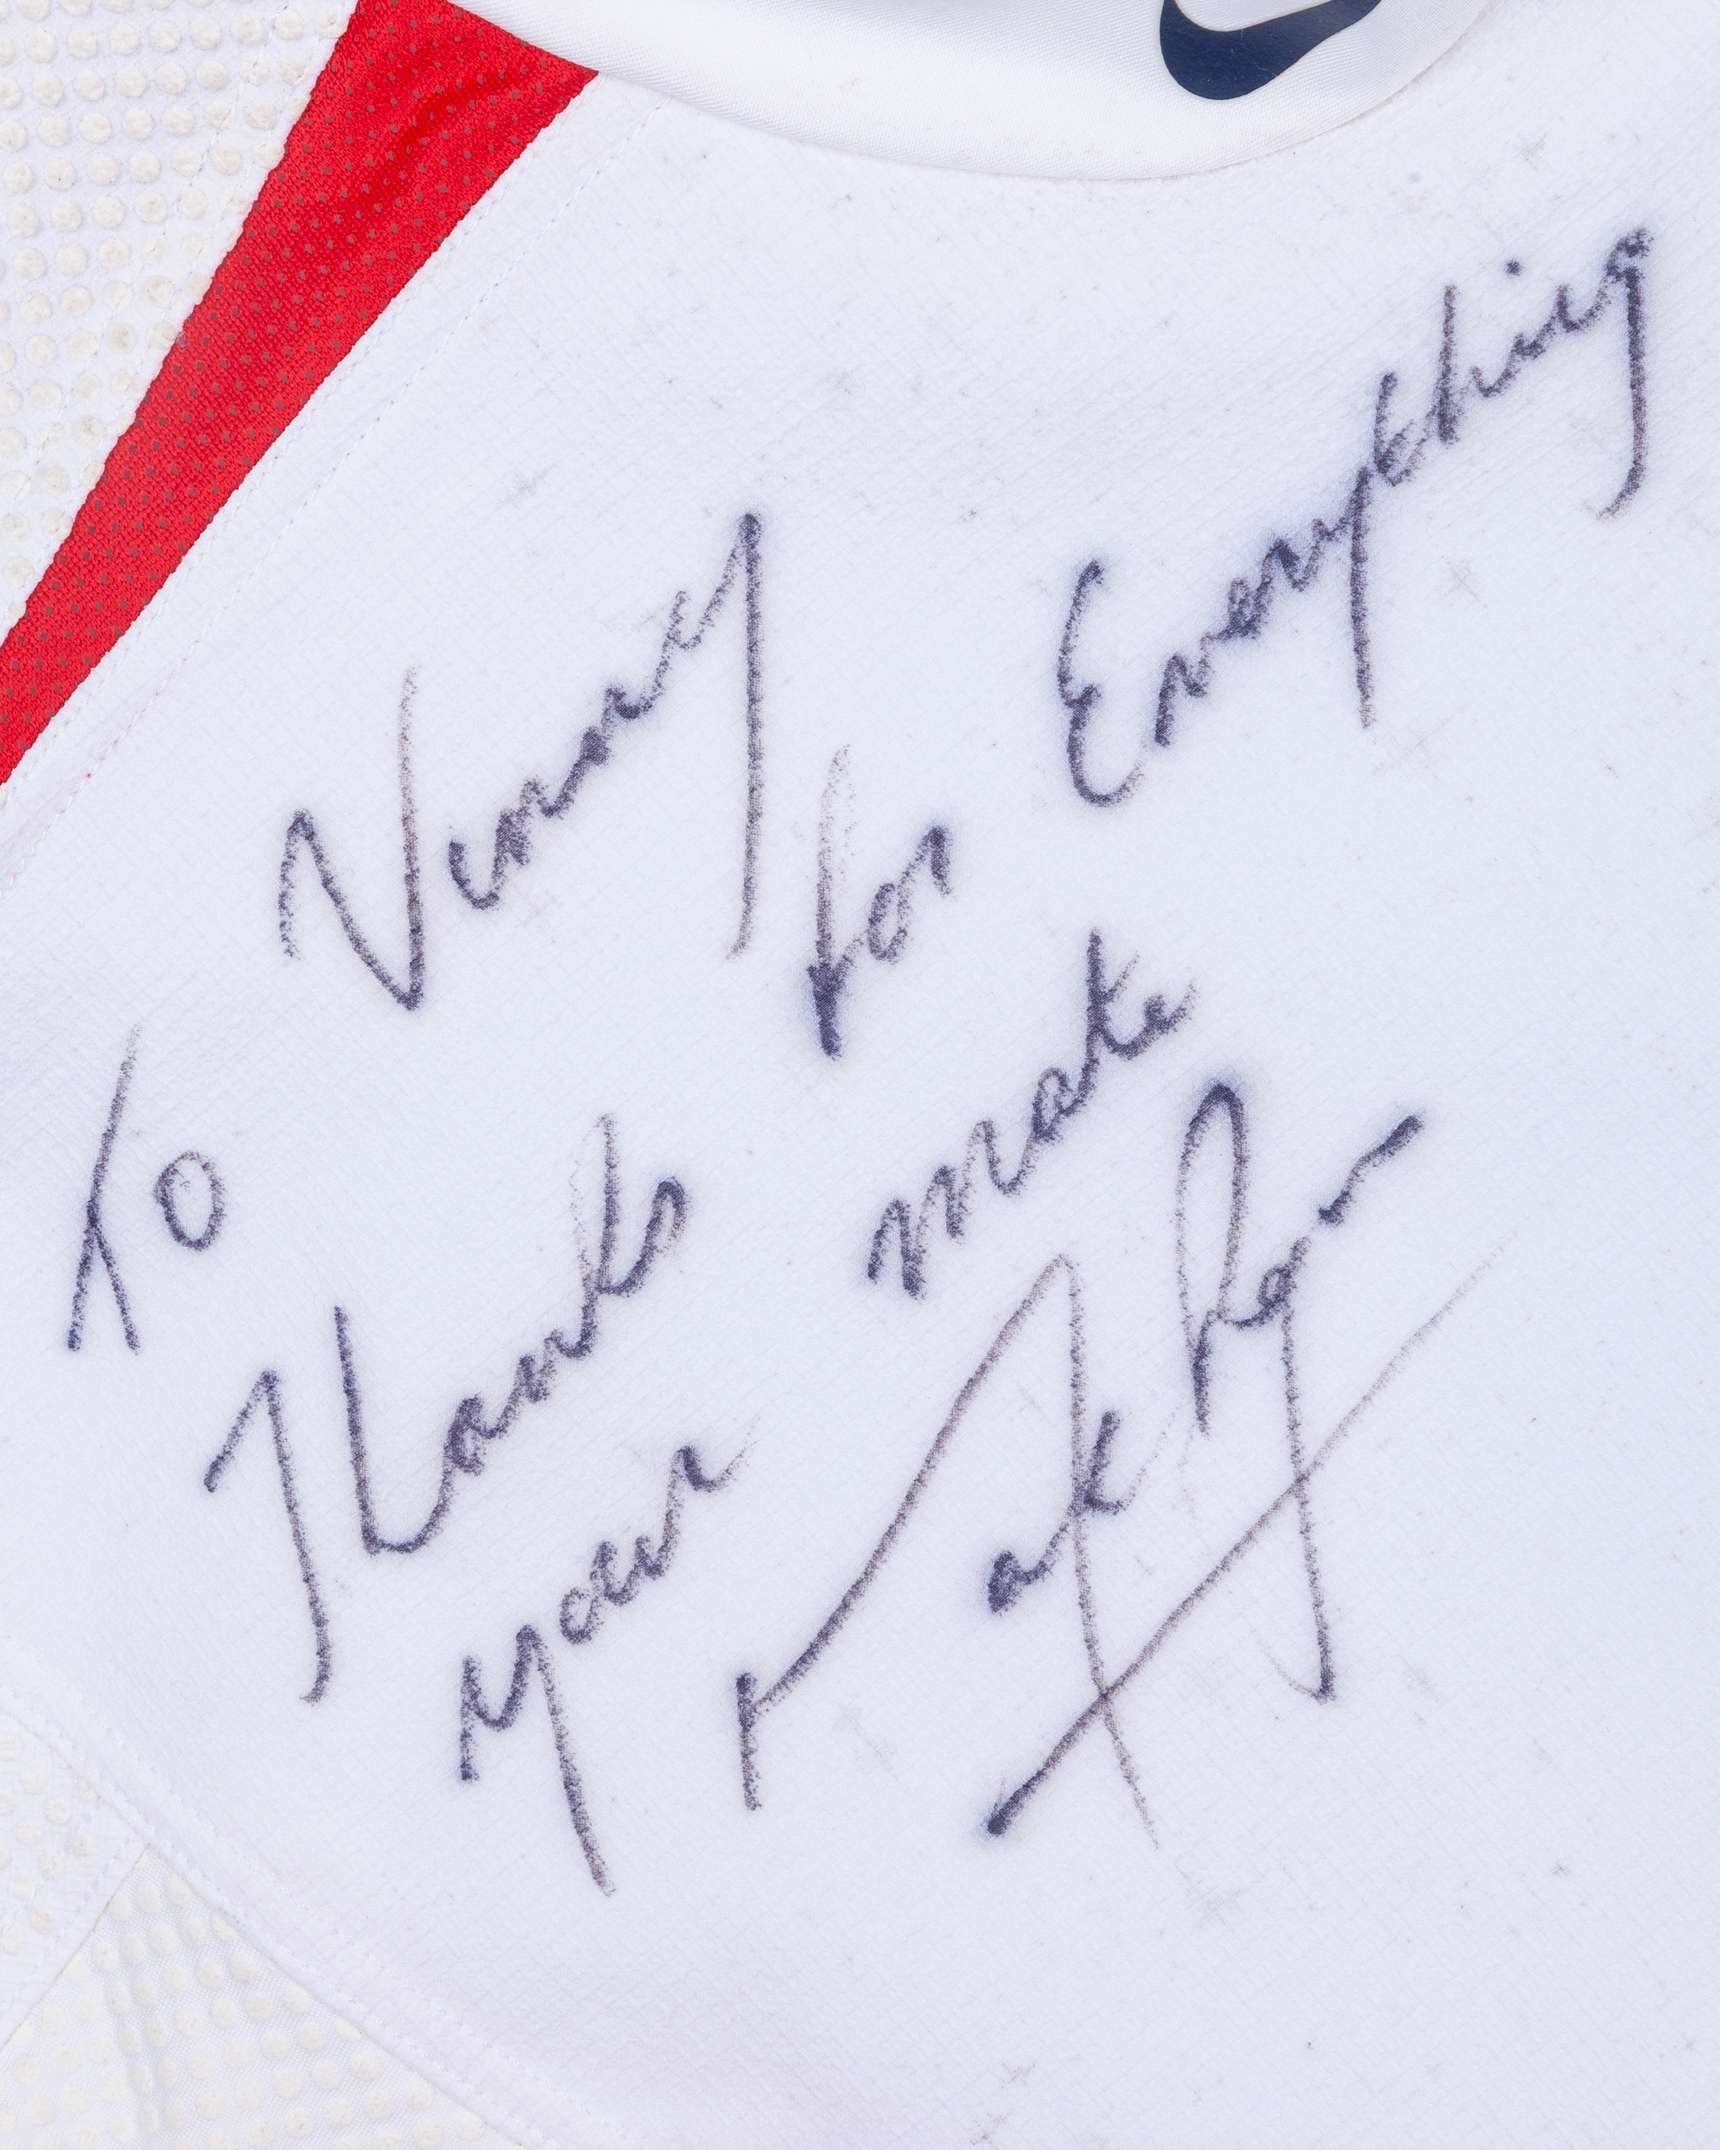 To Vinny
Thanks for Everything
your mate